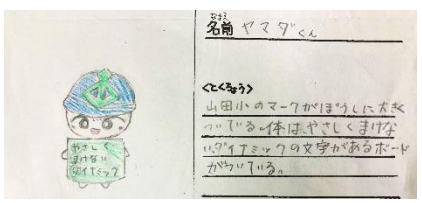 なまえ
名前 ヤマダくん
<とくちょう>
山田小のマークがぼうしに大きく
ついている。体は、やさしくまけな
い、ダイナミックの文字があるボード
がついている。
やさしく
まけない
ダイナミック